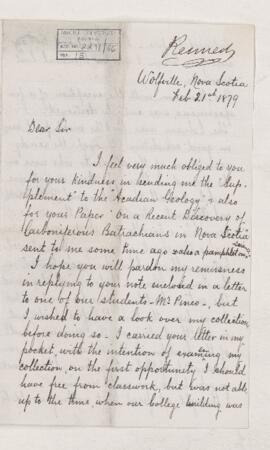 Kennedy
Wolfville, Nova Scotia
Feb 21st 1879
Dear Sir
I feel very much obliged to you
for your kindness in sending me the "Sup-
plement" to the "Acadian Geology" & also
for your Paper "On a Recent Discovery of
Carboniferous Batrachians in Nova Scotia"
sent to me some time ago & also a pamphlet on
I hope you will pardon my remissness
in replying to your note enclosed in a letter
to one of our students - Mr Pineo -, but
I wished to have a look over my collection
before doing so. I carried your letter in my
pocket, with the intention of examing my
collection, on the first opportunity I should
have free from classwork, but was not able
up to the time, when our College building was